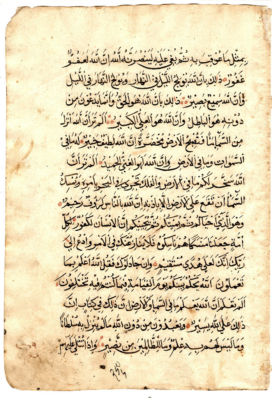 بمثل ما عوقب به ثم بغي عليه لينصرنه الله ان الله لعفو
غفور ذلك بان الله يولج الليل في النهار ويولج النهار في الليل
وان الله سميع بصير ذلك بان الله هو الحق وان ما يدعون من
دونه هو الباطل وان الله هو العلي الكبير الم تر ان الله انزل
من السماء ماء فتصبح الارض مخضرة ان الله لطيف خبير له ما في
السموات وما في الارض وان الله لهو الغني الحميد الم تر ان
الله سخر لكم ما في الارض والفلك تجري في البحر بامره ويمسك
السماء ان تقع على الارض الا باذنه ان الله بالناس لرؤف رحيم
وهو الذي احياكم ثم يميتكم ثم يحييكم ان الانسان لكفور لكل
امة جعلنا منسكا هم ناسكوه فلا ينازعنك في الامر وادع الى
ربك انك لعلى هدى مستقيم وان جادلوك فقل الله اعلم بما
تعملون الله يحكم بينكم يوم القيامة فيما كنتم فيه تختلفون
الم تعلم ان الله يعلم ما في السماء والارض ان ذلك في كتاب ان
ذلك على الله يسير ويعبدون من دون الله ما لم ينزل به سلطانا
وما ليس لهم به علم وما للظالمين من نصير واذا تتلى عليهم